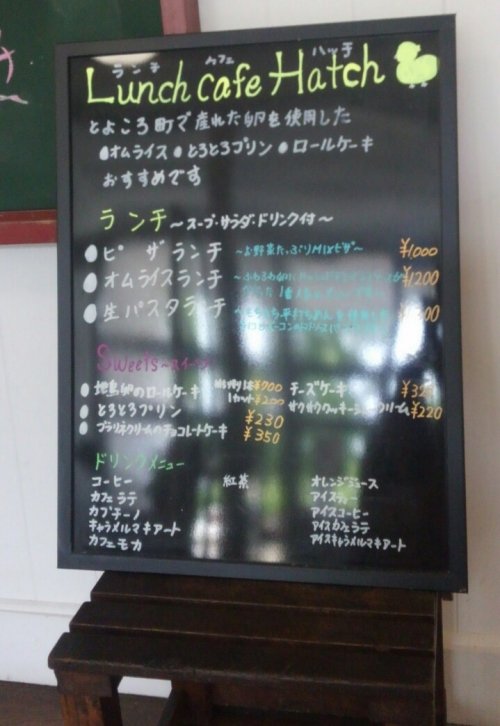 ランチ カフェ ハッチ
Lunch cafe Hatch
とよころ町で産れた卵を使用した
●オムライス ●とろとろプリン ●ロールケーキ
おすすめです
ランチ ～スープ・サラダ・ドリンク付～
●ピザランチ ～お野菜たっぷりMIXピザ～ ¥1000
●オムライスランチ ¥1200
●生パスタランチ
Sweets～スイーツ～
●地鳥卵のロールケーキ 1本¥900 チーズケーキ
1カット¥200
●とろとろプリン ¥230 ¥220
●プラリネクリームのチョコレートケーキ ¥350
ドリンクメニュー
コーヒー 紅茶 オレンジジュース
カフェラテ アイスティー
カプチーノ アイスコーヒー
キャラメルマキアート アイスカフェラテ
カフェモカ アイスキャラメルマキアート